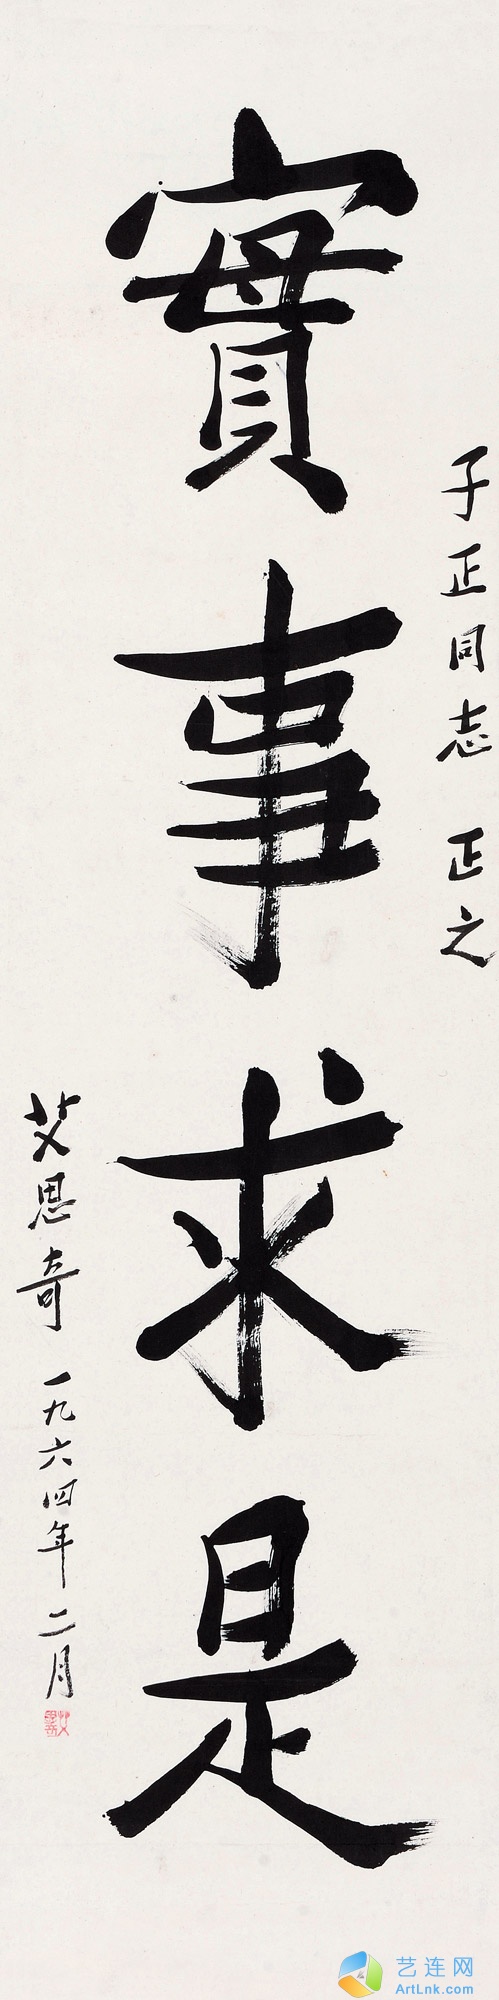 子正同志 正之
實事求是
艾思奇 一九六四年二月
艺连网
ArtLnk.com